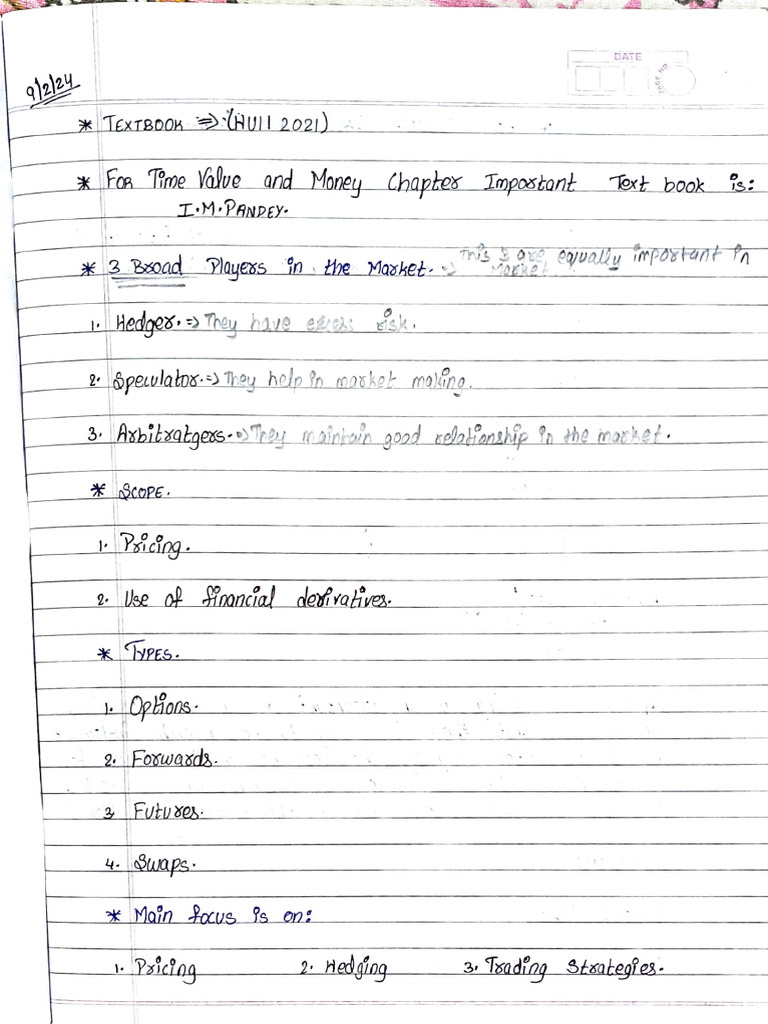 DATE
PAGE NO
9/2/24
* TEXTBOOK ⇒ (HUII 2021)
* FOR Time Value and Money Chapter Important Text book is:
I.M.PANDEY.
* 3 Broad Players in the Market. ⇒ This 3 are equally important in
Market
1. Hedger. ⇒ They have excess risk.
2. Speculator. ⇒ They help in market making.
3. Arbitratgers. ⇒ They maintain good relationship in the market.
* SCOPE.
1. Pricing.
2. Use of financial derivatives.
* TYPES.
1. Options.
2. Forwards.
3 Futures.
4. Swaps.
* Main focus is on:
1. Pricing 2. Hedging 3. Trading Strategies.